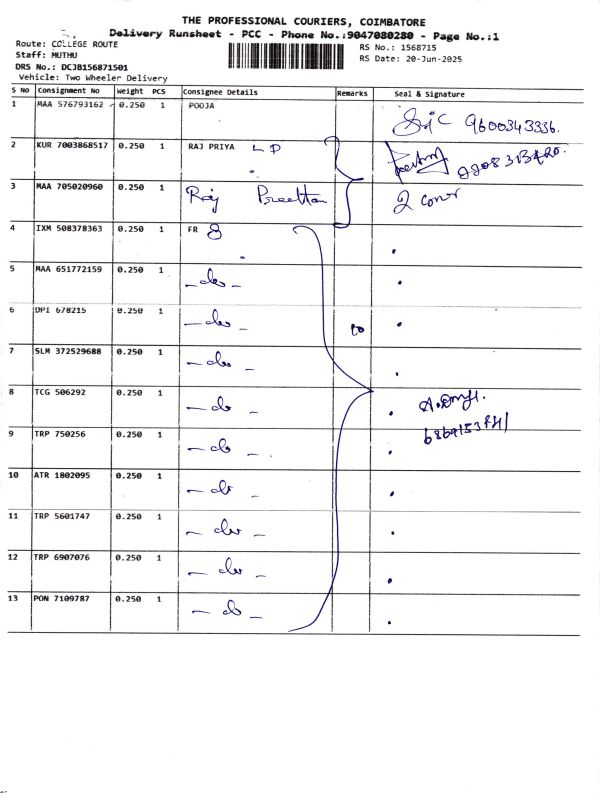 THE PROFESSIONAL COURIERS, COIMBATORE
Delivery Runsheet - PCC - Phone No.:9047080280 - Page No.:1
Route: COLLEGE ROUTE
RS No.: 1568715
Staff: MUTHU
RS Date: 20-Jun-2025
DRS No.: DCJB156871501
Vehicle: Two Wheeler Delivery
S No Consignment No Weight PCS Consignee Details Remarks Seal & Signature
1 MAA 576793162 0.250 1 POOJA
9600343336.
2 KUR 7003868517 0.250 1 RAJ PRIYA L P
3 MAA 705020960 0.250 1 Raj
4 IXM 508378363 0.250 1 FR 8
5 MAA 651772159 0.250 1 - do -
6 DPI 678215 0.250 1 - do -
7 SLM 372529688 0.250 1 - do -
8 TCG 506292 0.250 1 - do -
9 TRP 750256 0.250 1 - do -
10 ATR 1802095 0.250 1 - do -
11 TRP 5601747 0.250 1 - do -
12 TRP 6907076 0.250 1 - do -
13 PON 7109787 0.250 1 - do -